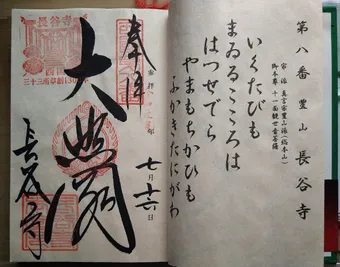 第八番 豊山 長谷寺
宗派 真言宗豊山派(総本山)
御本尊 十一面観世音菩薩
いくたびも
まゐるこころは
はつせでら
やまもちかひも
ふかきたにがわ
奉拝
七月十六日
大悲閣
長谷寺